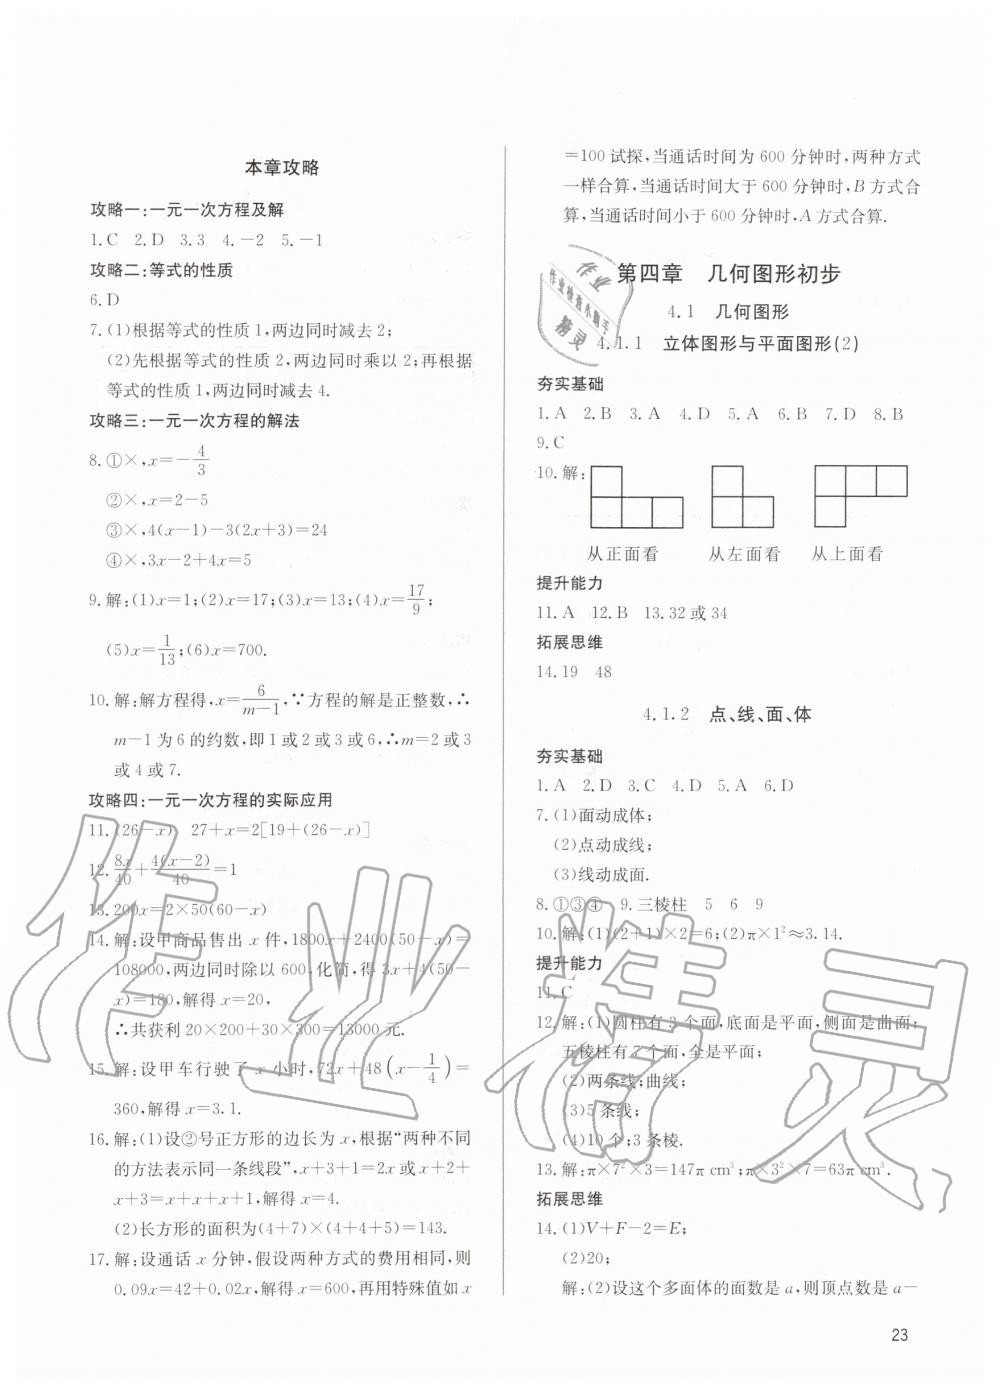 本章攻略
攻略一:一元一次方程及解
1.C 2.D 3.3 4.-2 5.-1
攻略二:等式的性质
6.D
7.(1)根据等式的性质1,两边同时减去2;
(2)先根据等式的性质2,两边同时乘以2;再根据
等式的性质1,两边同时减去4.
攻略三:一元一次方程的解法
8.①×,x=-4/3
②×,x=2-5
③×,4(x-1)-3(2x+3)=24
④×,3x-2+4x=5
9.解:(1)x=1;(2)x=17;(3)x=13;(4)x=17/9;
(5)x=1/13;(6)x=700.
10.解:解方程得,x=6/(m-1),∵方程的解是正整数,∴
m-1为6的约数,即1或2或3或6,∴m=2或3
或4或7.
攻略四:一元一次方程的实际应用
11.(26-x) 27+x=2[19+(26-x)]
12.8x/40+4(x-2)/40=1
13.200x=2×50(60-x)
14.解:设甲商品售出x件,1800x+2400(50-x)=
108000,两边同时除以600,化简,得3x+4(50-
x)=180,解得x=20,
∴共获利20×200+30×300=13000元.
15.解:设甲车行驶了x小时,72x+48(x-1/4)=
360,解得x=3.1.
16.解:(1)设②号正方形的边长为x,根据“两种不同
的方法表示同一条线段”,x+3+1=2x或x+2+
x+3=x+x+x+1,解得x=4.
(2)长方形的面积为(4+7)×(4+4+5)=143.
17.解:设通话x分钟,假设两种方式的费用相同,则
0.09x=42+0.02x,解得x=600,再用特殊值如x
=100试探,当通话时间为600分钟时,两种方式
一样合算,当通话时间大于600分钟时,B方式合
算,当通话时间小于600分钟时,A方式合算.
第四章 几何图形初步
4.1 几何图形
4.1.1 立体图形与平面图形(2)
夯实基础
1.A 2.B 3.A 4.D 5.A 6.B 7.D 8.B
9.C
10.解:
从正面看 从左面看 从上面看
提升能力
11.A 12.B 13.32或34
拓展思维
14.19 48
4.1.2 点、线、面、体
夯实基础
1.A 2.D 3.C 4.D 5.A 6.D
7.(1)面动成体;
(2)点动成线;
(3)线动成面.
8.①③④ 9.三棱柱 5 6 9
10.解:(1)(2+1)×2=6;(2)π×1²≈3.14.
提升能力
11.C
12.解:(1)圆柱有3个面,底面是平面,侧面是曲面;
五棱柱有7个面,全是平面;
(2)两条线;曲线;
(3)5条线;
(4)10个;3条棱.
13.解:π×7²×3=147π cm³;π×3²×7=63π cm³.
拓展思维
14.(1)V+F-2=E;
(2)20;
解:(2)设这个多面体的面数是a,则顶点数是a-
23
作业
作业检查小助手
精灵
作业精灵